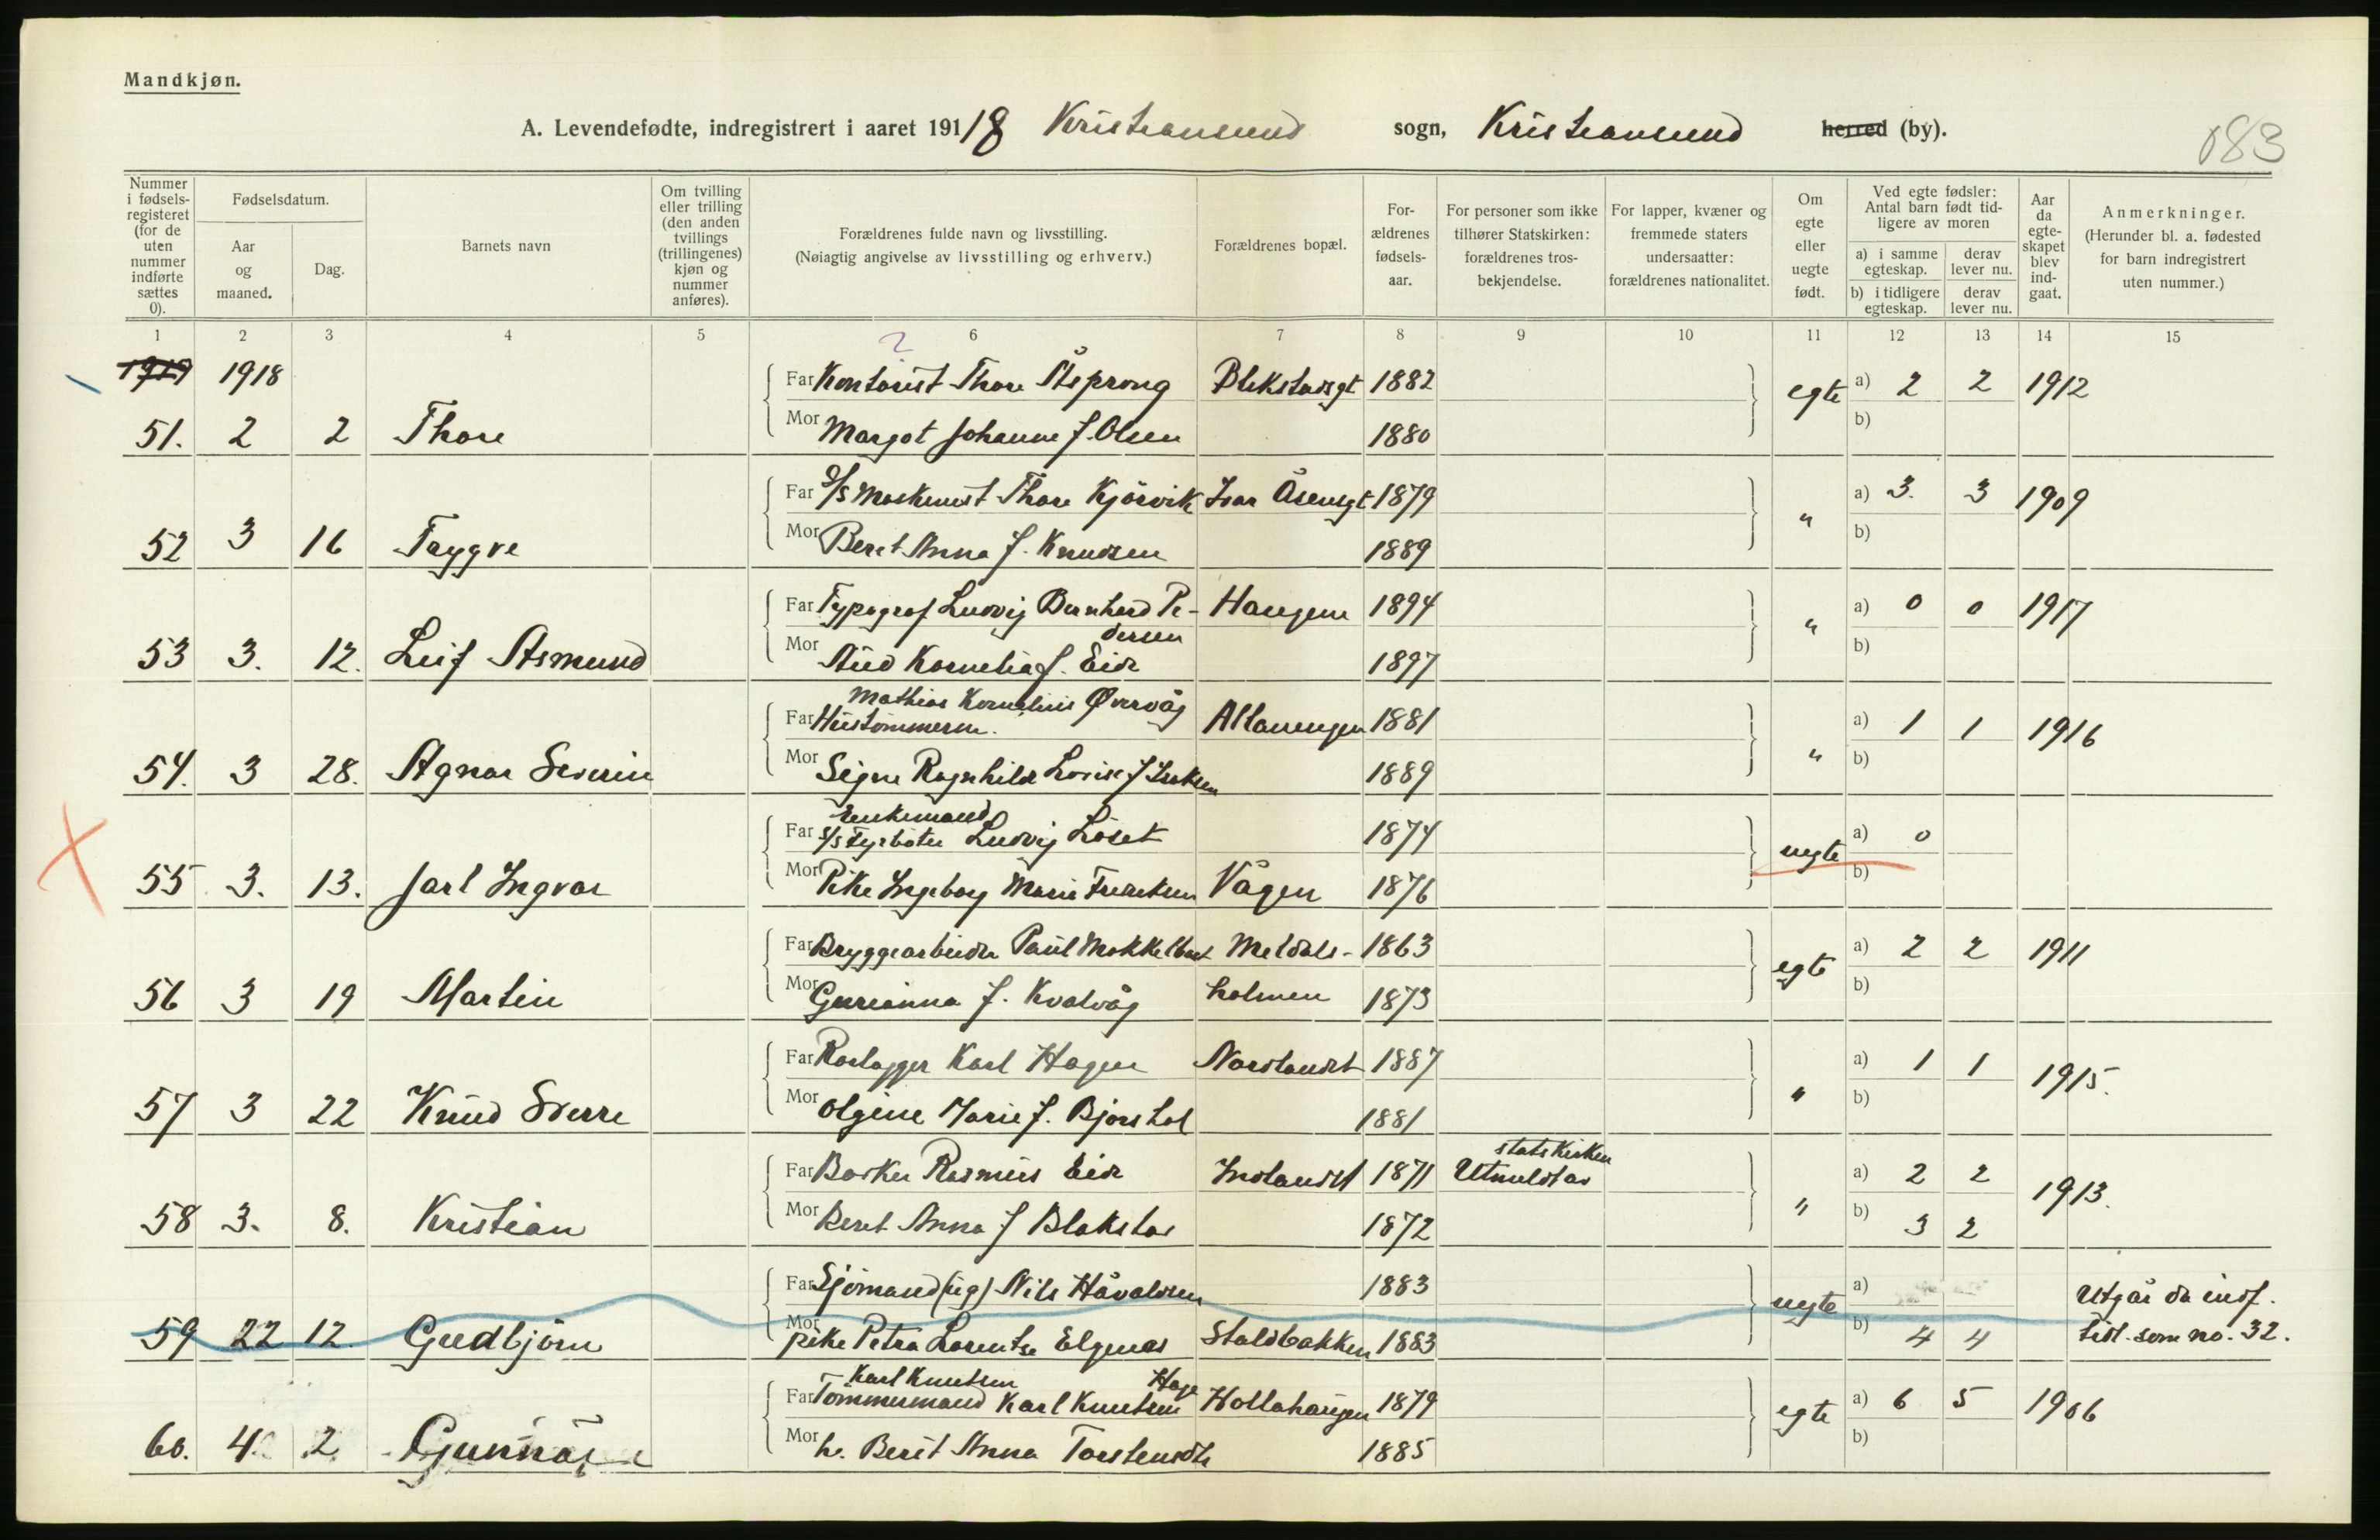 Mandkjøn.
A. Levendefødte, indregistrert i aaret 191/8 Kristiansund sogn, Kristiansund herred (by).
183
Nummer i fødsels-registeret (for de uten nummer indførte sættes 0).
Fødselsdatum.
Aar og maaned.
Dag.
Barnets navn
Om tvilling eller trilling (den anden tvillings (trillingenes) kjøn og nummer anføres).
Forældrenes fulde navn og livsstilling.
(Nøiagtig angivelse av livsstilling og erhverv.)
Forældrenes bopæl.
For-ældrenes fødsels-aar.
For personer som ikke tilhører Statskirken: forældrenes tros-bekjendelse.
For lapper, kvæner og fremmede staters undersaatter: forældrenes nationalitet.
Om egte eller uegte født.
Ved egte fødsler: Antal barn født tid-ligere av moren
a) i samme egteskap.
derav lever nu.
b) i tidligere egteskap.
derav lever nu.
Aar da egte-skapet blev ind-gaat.
Anmerkninger.
(Herunder bl. a. fødested for barn indregistrert uten nummer.)
1 2 3 4 5 6 7 8 9 10 11 12 13 14 15
1919 1918
Far Kontorist Thore Åsprong 1882 egte a) 2 2 1912
51. 2 2 Thore Mor Margot Johanne f. Olsen 1880 b)
Far D/S Maskinist Thore Kjörvik Ivar Åsensgt 1879 " a) 3. 3 1909
52 3 16 Trygve Mor Beret Anna f. Knudsen 1889 b)
Far Typograf Ludvig Bernhard Pe- Haugene 1894 " a) 0 0 1917
dersen
53 3. 12. Leif Asmund Mor Aud Kornelia f. Eide 1897 b)
Mathias Kornelius Øvervåg
Far Hustömmerm. Allanengen 1881 " a) 1 1 1916
54. 3 28. Agnar Severin Mor Signe Ragnhild Lovise f Isaksen 1889 b)
Enkemand
Far S/S Fyrböter Ludvig Löset 1874 uegte a) 0
55 3. 13. Jarl Ingvar Mor Pike Ingeborg Marie Vågen 1876 b)
Far Bryggearbeider Paul Mokkelbost Meldals- 1863 egte a) 2 2 1911
56 3 19 Martin Mor Gurianna f. Kvalvåg holmen 1873 b)
Far Rörlægger Karl Hagen Nordlandet 1887 " a) 1 1 1915.
57 3 22 Knud Sverre Mor Olgine Marie f. 1881 b)
statskirken
Far Barker Rasmus Eide Indlandet 1871 Utmeldt av " a) 2 2 1913.
58 3. 8. Kristian Mor Beret Anna f Blakstad 1872 b) 3 2
Far Sjömand (ug) Nils Håvaldsen 1883 uegte a) Utgår da indf.
59 22 12. Gudbjörn Mor pike Petra Lorentse Elgenes Staldbakken 1883 b) 4 4 tidl. som no. 32.
Karl Knutsen Hage
Far Tömmermand Karl Knutsen Hollahaugen 1879 egte a) 6 5 1906
60. 4 2 Gunnar Mor h. Berit Anna Torstensdtr 1885 b)